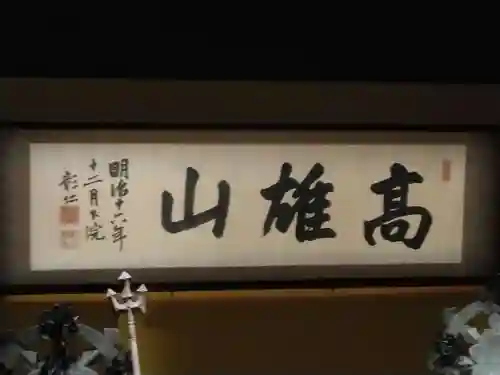 高雄山
明治十六年
十二月大院
彰仁